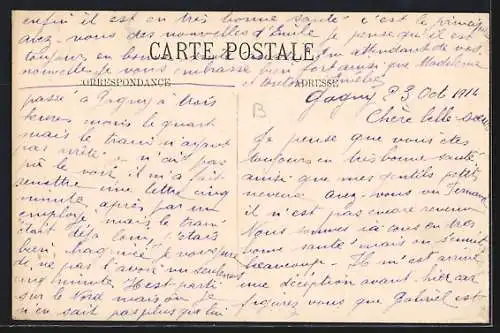 Gagny 23 Oct 1914
Chère belle-sœur
Je pense que vous êtes
toujours en très bonne santé
ainsi que mes gentils petits
neveux. Avez-vous vu Fernand
il n'est pas encore revenu
Nous sommes ici tous en très
bonne santé mais on s'ennuit
beaucoup. Il m'est arrivé
une déception avant-hier car
figurez vous que Gabriel est
passé à Gagny à trois
heures moins le quart
mais le train n'ayant
pas arrêté je n'ai pas
pu le voir, il m'a fait
remettre une lettre cinq
minutes après par un
employé mais le train
était déjà loin, j'étais
bien de
ne pas l'avoir vu seulement
cinq minutes. Il est parti
sur le Nord mais je
n'en sait pas plus que lui
enfin il est en très bonne santé c'est le principal
avez-vous des nouvelles d'Emile je pense qu'il est
toujours en bonne santé. En attendant de vos
nouvelles je vous embrasse bien fort ainsi que Madeleine
et toute
CARTE POSTALE
CORRESPONDANCE
ADRESSE
B